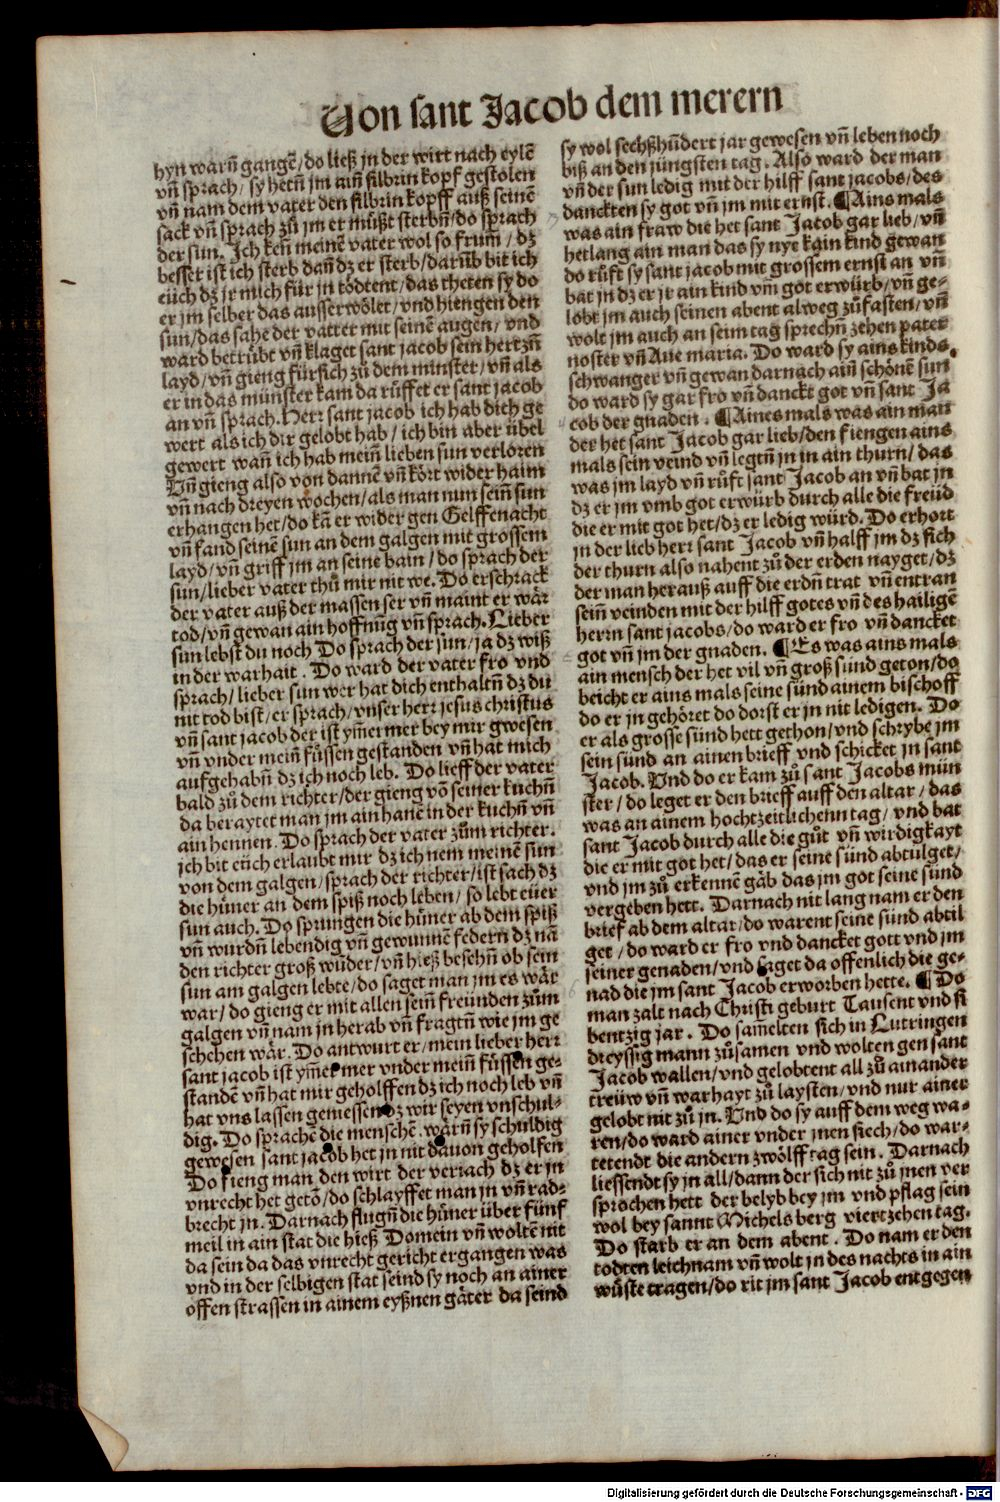 Von sant Jacob dem merern
hyn warn̄ gangē/do ließ jn der wirt nach eylē
vn̄ sprach/ sy hetn̄ jm ain̄ silbrin kopf gestolen
vn̄ nam dem vater den silbrin kopff auß seinē
sack vn̄ sprach zů jm er můßt sterbn̄/do sprach
der sun. Ich ken̄ meinē vater wol so frum̄/ dz
besser ist ich sterb dan̄ dz er sterb/darūb bit ich
eüch dz jr mich für jn tödtent/das theten sy do
er jm selber das ausserwölet/vnd hiengen den
sun/das sahe der vatter mit seinē augen/ vnd
ward betrübt vn̄ klaget sant jacob sein hertzn̄
layd/vn̄ gieng fürsich zů dem münster/vn̄ als
er in das münster kam da růffet er sant jacob
an vn̄ sprach. Herr sant jacob ich hab dich ge
wert als ich dir gelobt hab/ ich bin aber übel
gewert wan̄ ich hab mein̄ lieben sun verloren
Vn̄ gieng also von dannē vn̄ kört wider haim
vn̄ nach dreyen wochen/als man nun sein̄ sun
erhangen het/do kā er wider gen Gelffenacht
vn̄ fand seinē sun an dem galgen mit grossem
layd/vn̄ griff jm an seine bain/do sprach der
sun/lieber vater thů mir nit we. Do erschrack
der vater auß der massen ser vn̄ maint er wär
tod/vn̄ gewan ain hoffnūg vn̄ sprach. Lieber
sun lebst du noch Do sprach der sun/ja dz wiß
in der warhait. Do ward der vater fro vnd
sprach/lieber sun wer hat dich enthaltn̄ dz du
nit tod bist/er sprach/vnser herr jesus christus
vn̄ sant jacob der ist ym̄er mer bey mir gwesen
vn̄ vnder mein̄ füssen gestanden vn̄ hat mich
aufgehabn̄ dz ich noch leb. Do lieff der vater
bald zů dem richter/der gieng vō seiner kuchn̄
da beraytet man jm ain hanē in der kuchn̄ vn̄
ain hennen. Do sprach der vater zům richter.
ich bit eüch erlaubt mir dz ich nem meinē sun
von dem galgen/sprach der richter/ist sach dz
die hüner an dem spiß noch leben/ so lebt eüer
sun auch. Do sprungen die hüner ab dem spiß
vn̄ wurdn̄ lebendig vn̄ gewunnē federn dz nā
den richter groß wūder/vn̄ hieß besehn̄ ob sein
sun am galgen lebte/do saget man jm es wär
war/do gieng er mit allen sein̄ freünden zům
galgen vn̄ nam jn herab vn̄ fragtn̄ wie jm ge
schehen wär. Do antwurt er/mein lieber herr
sant jacob ist ym̄er mer vnder mein̄ füssen ge-
standē vn̄ hat mir geholffen dz ich noch leb vn̄
hat vns lassen geniessen dz wir seyen vnschul-
dig. Do sprachē die menschē. warn̄ sy schuldig
gewesen sant jacob het jn nit dauon geholfen
Do fieng man den wirt der veriach dz er jn
vnrecht het getō/do schlayffet man jn vn̄ rad-
brecht jn. Darnach flugn̄ die hüner über fünf
meil in ain stat die hieß Domein vn̄ woltē nit
da sein da das vnrecht gericht ergangen was
vnd in der selbigen stat seind sy noch an ainer
offen strassen in ainem eyßnen gäter da seind
sy wol sechßhūdert jar gewesen vn̄ leben noch
biß an den jüngsten tag. Also ward der man
vn̄ der sun ledig mit der hilff sant jacobs/des
danckten sy got vn̄ jm mit ernst. ¶Ains mals
was ain fraw die het sant Jacob gar lieb/vn̄
het lang ain man das sy nye kain kind gewan
do růft sy sant jacob mit grossem ernst an vn̄
bat jn dz er jr ain kind vm̄ got erwürb/vn̄ ge-
lobt jm auch seinen abent alweg zů fasten/vn̄
wolt jm auch an seim tag sprechn̄ zehen pater
noster vn̄ Aue maria. Do ward sy ains kinds
schwanger vn̄ gewan darnach ain̄ schönē sun
do ward sy gar fro vn̄ danckt got vn̄ sant Ja
cob der gnaden. ¶Aines mals was ain man
der het sant Jacob gar lieb/den fiengen ains
mals sein veind vn̄ legtn̄ jn in ain thurn/ das
was jm layd vn̄ růft sant Jacob an vn̄ bat jn
dz er jm vmb got erwürb durch alle die freüd
die er mit got het/dz er ledig würd. Do erhort
jn der lieb herr sant Jacob vn̄ halff jm dz sich
der thurn also nahent zů der erden nayget/dz
der man herauß auff die erdn̄ trat vn̄ entran
sein̄ veinden mit der hilff gotes vn̄ des hailigē
herrn sant jacobs/do ward er fro vn̄ dancket
got vn̄ jm der gnaden. ¶Es was ains mals
ain mensch der het vil vn̄ groß sünd geton/do
beicht er ains mals seine sünd ainem bischoff
do er jn gehöret do dorst er jn nit ledigen. Do
er als grosse sünd hett gethon/vnd schrybe jm
sein sünd an ainen brieff vnd schicket jn sant
Jacob. Vnd do er kam zů sant Jacobs mün
ster/do leget er den brieff auff den altar/das
was an ainem hochtzeitlichenn tag/ vnd bat
sant Jacob durch alle die gůt vn̄ wirdigkayt
die er mit got het/das er seine sünd abtulget/
vnd jm zů erkennē gäb das jm got seine sünd
vergeben hett. Darnach nit lang nam er den
brief ab dem altar/do warent seine sünd abtil
get/do ward er fro vnd dancket gott vnd jm
seiner genaden/vnd saget da offenlich die ge-
nad die jm sant Jacob erworben hette. ¶Do
man zalt nach Christi geburt Tausent vnd si
bentzig jar. Do sam̄elten sich in Lutringen
dreyssig mann zůsamen vnd wolten gen sant
Jacob wallen/vnd gelobtent all zů ainander
treüw vn̄ warhayt zů laysten/vnd nur ainer
gelobt nit zů jn. Vnd do sy auff dem weg wa-
ren/do ward ainer vnder jnen siech/do war-
tetendt die andern zwölff tag sein. Darnach
liessendt sy jn all/dann der sich nit zů jnen ver
sprochen hett der belyb bey jm vnd pflag sein
wol bey sannt Michels berg viertzehen tag.
Do starb er an dem abent. Do nam er den
todten leichnam vn̄ wolt jn des nachts in ain
wůste tragen/do rit jm sant Jacob entgegen
Digitalisierung gefördert durch die Deutsche Forschungsgemeinschaft - DFG